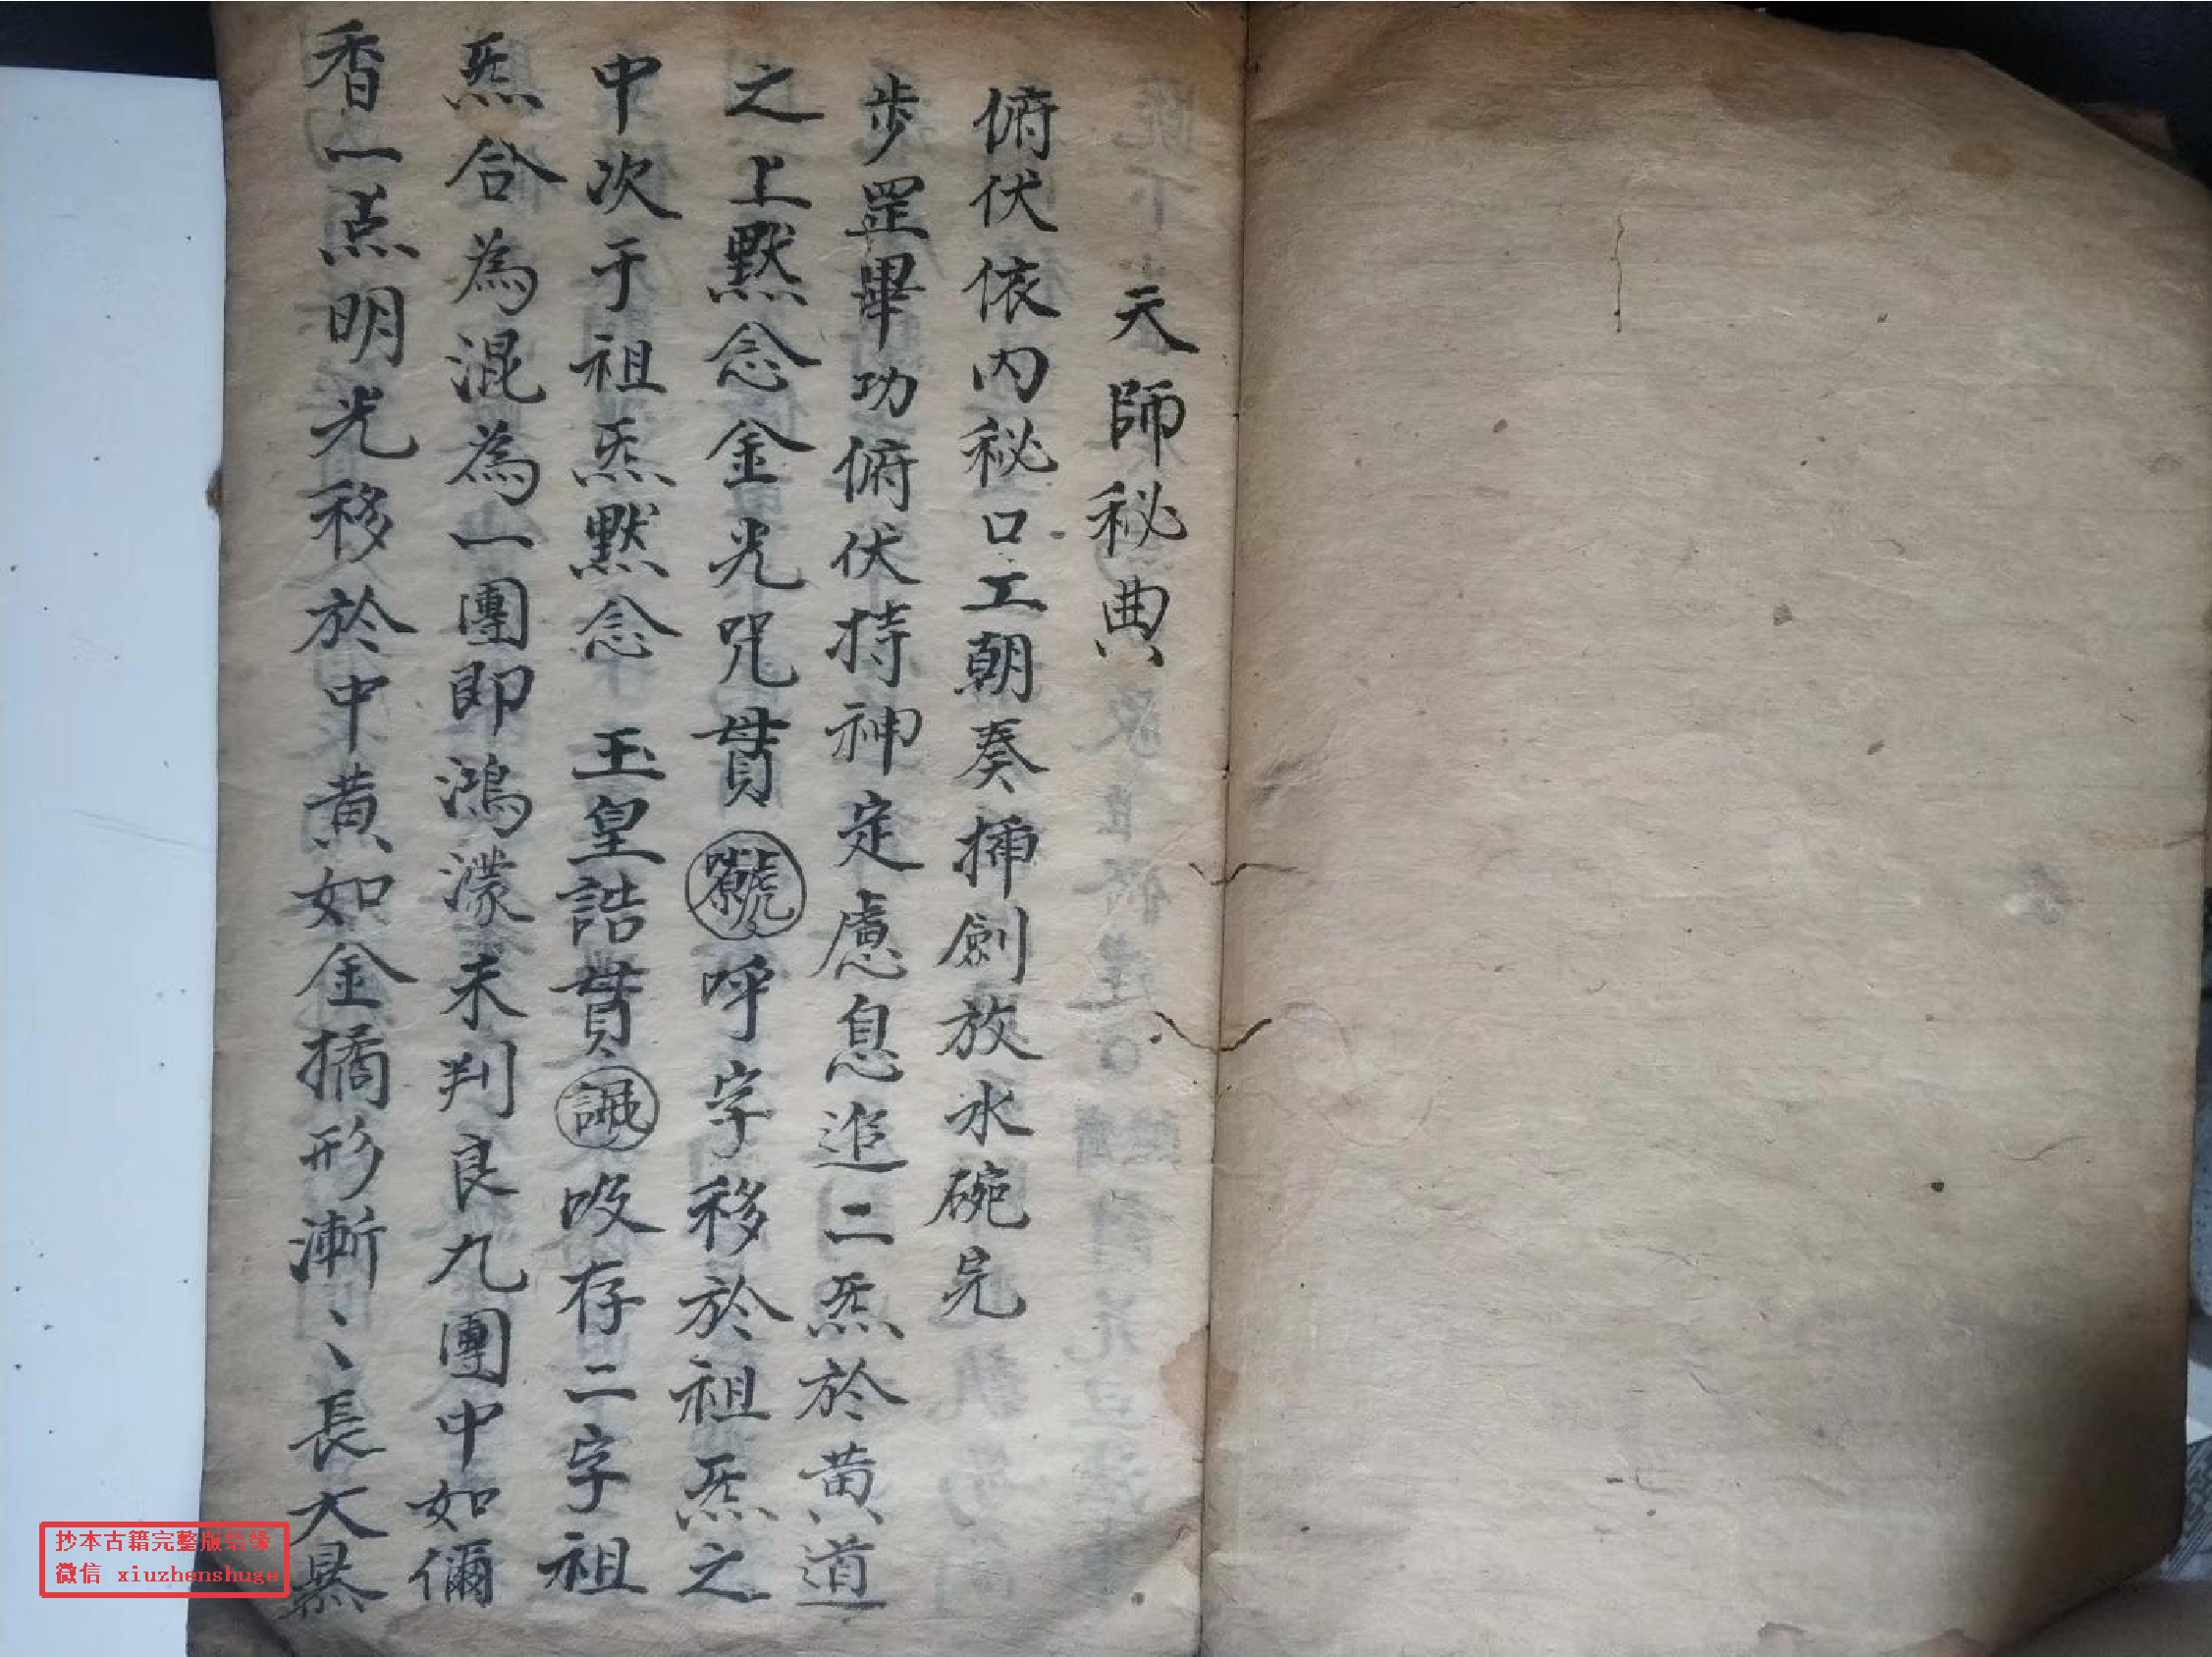 天師秘典
俯伏依内秘口工朝奏揷劍放水碗完
步罡畢功俯伏持神定慮息追二炁於黄道
之上黙念金光咒貫呼字移於祖炁之
中次于祖炁黙念玉皇誥貫吸存二字祖
炁合為混為一團即鴻濛未判良久團中如
香一点明光移於中黄如金橘形漸丶丶長大
抄本古籍完整版结缘
微信 xiuzhenshuge